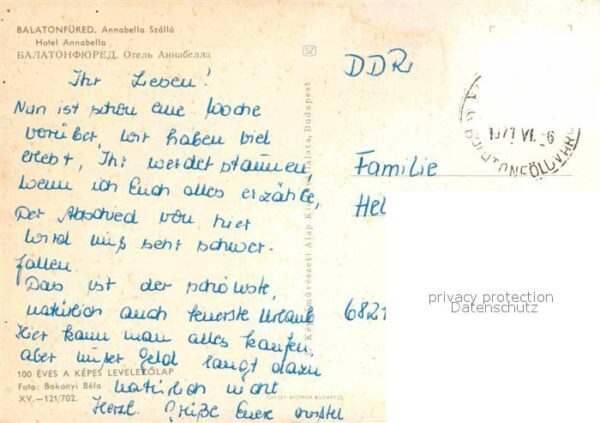 BALATONFÜRED. Annabella Szálló
Hotel Annabella
БАЛАТОНФЮРЕД. Отель Аннабелла
Ihr Lieben!
Nun ist schon eine Woche
vorüber, wir haben viel
erlebt, Ihr werdet staunen,
wenn ich Euch alles erzähle,
Der Abschied von hier
wird uns sehr schwer-
fallen.
Das ist der schönste,
natürlich auch teuerste Urlaub
Hier kann man alles kaufen,
aber unser Geld langt dazu
natürlich nicht
Herzl. Grüße Eure
100 ÉVES A KÉPES LEVELEZŐLAP
Foto: Bakonyi Béla
XV.—121/702.
Képzőművészeti Alap Kiadóvállalata, Budapest
OFFSET NYOMDA BUDAPEST
DDR
Familie
Hel
6821
1977 VI. 6
privacy protection
Datenschutz